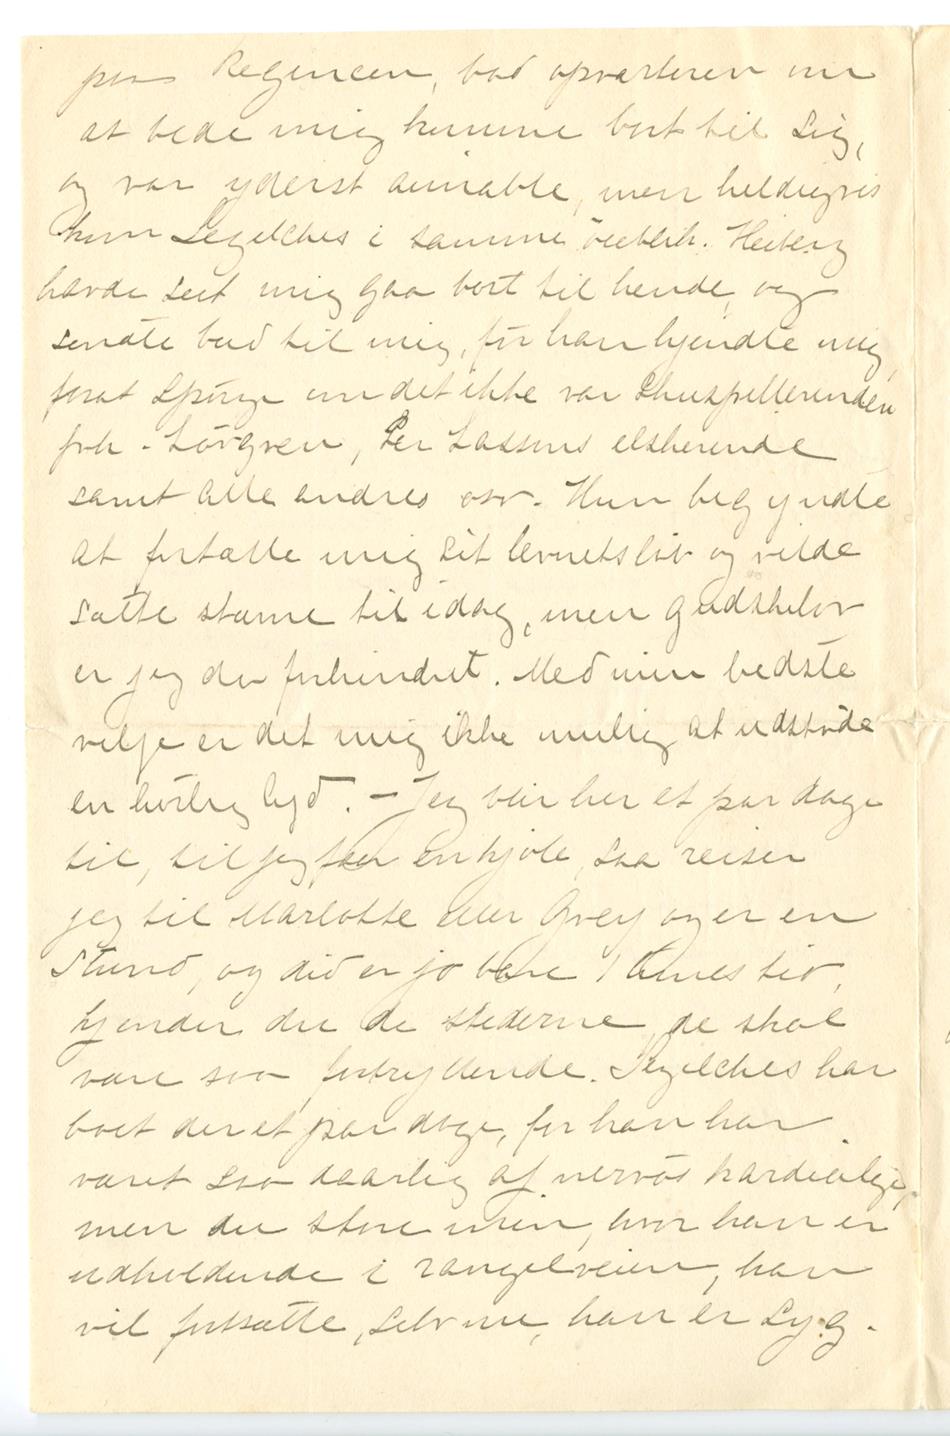 paa Regencen, bad opvarteren om
at bede mig komme bort til sig,
og var yderst aimable, men heldigvis
kom Segelches i samme øieblik. Heiberg
havde seet mig gaa bort til hende, og
sendte bud til mig, for han kjendte mig,
forat spørge om det ikke var skuespillerinden
frk. Løvgren, Per Lassons elskerinde
samt alle andres osv. Hun begyndte
at fortælle mig sit levnetsløb og vilde
sætte stævne til idag, men gudskelov
er jeg da forhindret. Med min bedste
vilje er det mig ikke mulig at udstøde
en høilig lyd. – Jeg blir her et par dage
til, til jeg faar en kjole, saa reiser
jeg til Marlotte eller Grey og er en
stund, og did er jo bare 1 times tid,
kjender du de stederne, de skal
være saa fortryllende. Segelches har
boet der et par dage, for han har
været saa daarlig af nervøs kardialgi,
men du store min, hvor han er
udholdende i rangelveien, han
vil fortsætte, selv om han er syg.